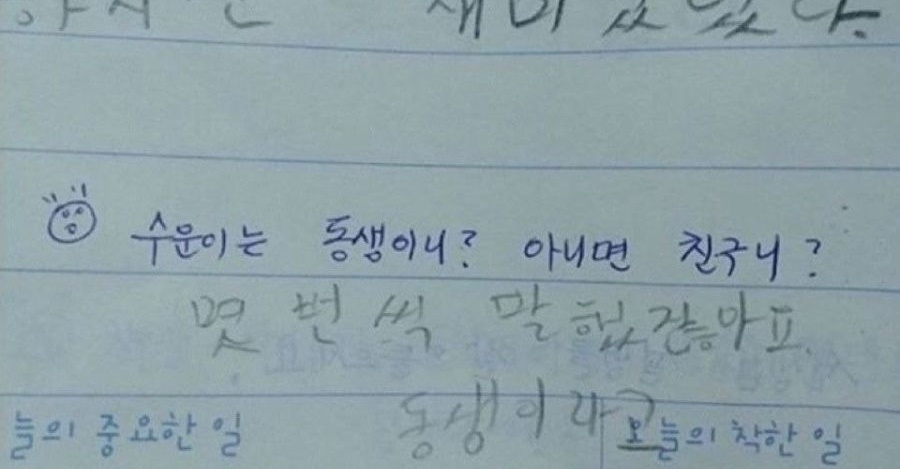 재미있었다.
수운이는 동생이니? 아니면 친구니?
몇 번씩 말했잖아요.
동생이라고
늘의 중요한 일
오늘의 착한 일